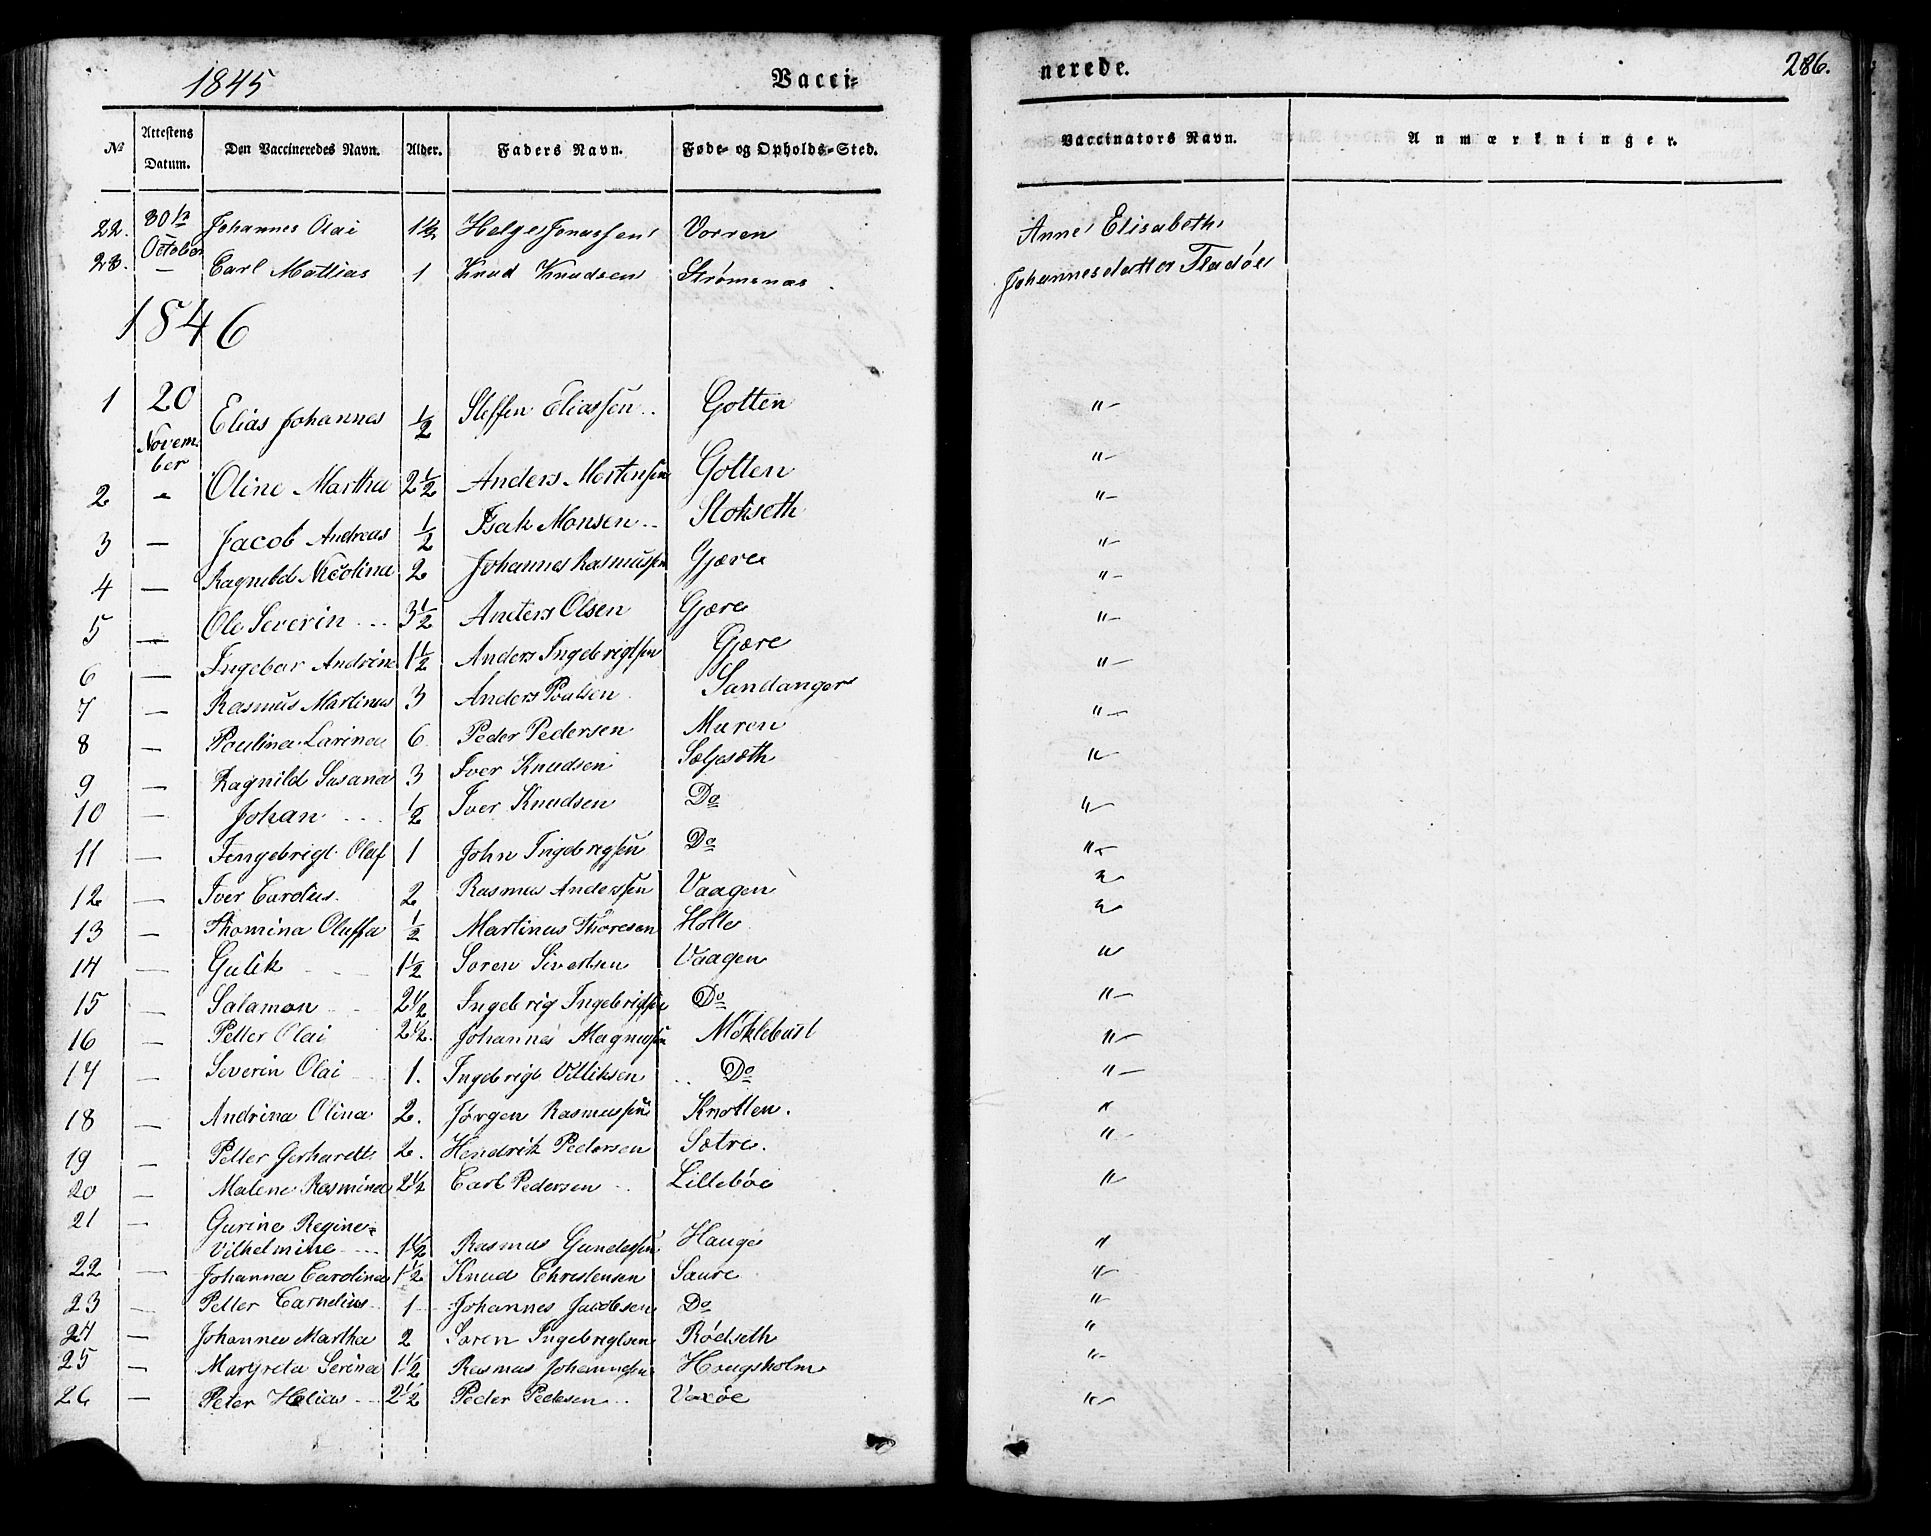 1845 Vacci=
№ Attestens Datum. Den Vaccineredes Navn. Alder. Faders Navn. Føde- og Opholds-Sted.
22. 30te October Johannes Olai 1½ Helge Jonassen Vorren
23. — Carl Mathias 1 Knud Knudsen Strømsnæs
1846
1 20 November Elias Johannes ½ Steffen Eliassen .. Golten
2 " Oline Martha 2½ Anders Mortensen Golten
3 — Jacob Andreas ½ Isak Monsen .. Stokseth
4 — Ragnild Nicolina 2 Johannes Rasmussen Gjære
5 — Ole Severin ... 3½ Anders Olsen Gjære
6 — Ingebor Andrine 1½ Anders Ingebrigtsen Gjære
7 — Rasmus Martinus 3 Anders Poulsen Sandanger
8 — Poulina Larina 6 Peder Pedersen Muren
9 — Ragnild Susana 3 Iver Knudsen Sæljesæth
10 — Johan ... ½ Iver Knudsen Do
11 — Ingebrigt Olaf 1 John Ingebrigsen Do
12 — Iver Carolus. 2 Rasmus Anderssen Vaagen
13 — Thomina Oluffa ½ Martinus Thoresen Holte
14 — Gulik 1½ Soren Sivertsen Vaagen
15 — Salamon 2½ Ingebrig Ingebrigtsen Do
16 — Petter Olai 2½. Johannes Magnusen Møklebust
17 — Severin Olai 1. Ingebrigt Villiksen .. Do
18 — Andrina Olina 2. Jørgen Rasmussen Knotten.
19 — Petter Gerhardt 2. Hendrik Pedersen Sætre.
20 — Malene Rasmine 2½ Carl Pedersen Lillebøe
21 — Gurine Regine=
Vilhelmine ... 1½ Rasmus Gundersen Hauge
22 — Johanna Carolina 1½ Knud Christensen Saure
23 — Petter Carnelius 1 Johannes Jacobsen Do
24 — Johannes Martha 2 Soren Ingebregtsen Rødseth
25 — Margreta Serina 1½ Rasmus Johannesen Hougsholm
26 — Peter Helias .. 2½ Peder Pedersen .. Vaxøe
nerede. 286.
Vaccinators Navn. Anmærkninger.
Anne Elisabeth
Johannesdatter Fladøe
"—
"—
"—
"—
"—
"—
"—
"—
"—
"—
"—
"
"
"
"—
"—
"—
"
"—
"—
"
"—
"—
"
"—
"—